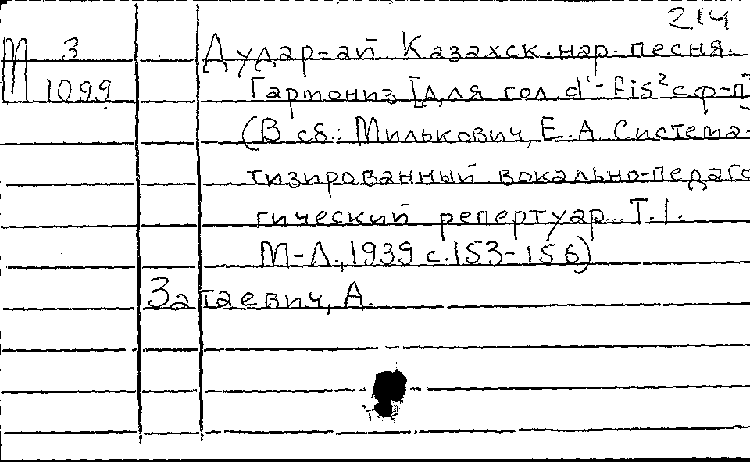 214
М 3
1099
Дудар-ай Казахск. нар. песня.
Гармониз [для гол. d'-fis² с ф-п]
(В сб.: Милькович, Е. А Система-
тизированный вокально-педаго
гический репертуар. Т. I.
М-Л., 1939 с. 153-156)
Затаевич, А.